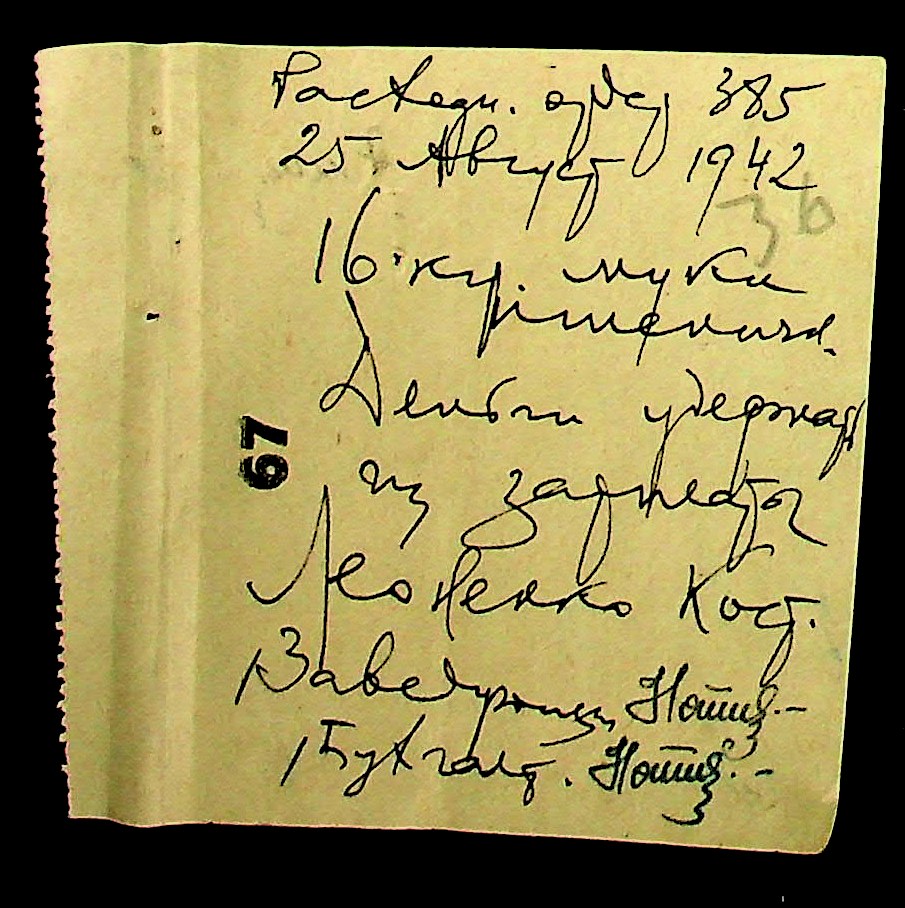 Расходн. одес 385
25 Август 1942
36
16 · кгр. муки
пшенична.
Деньги удержать
из зарплаты
Леоненко Кост.
Заведующий
Бухгалт.
67